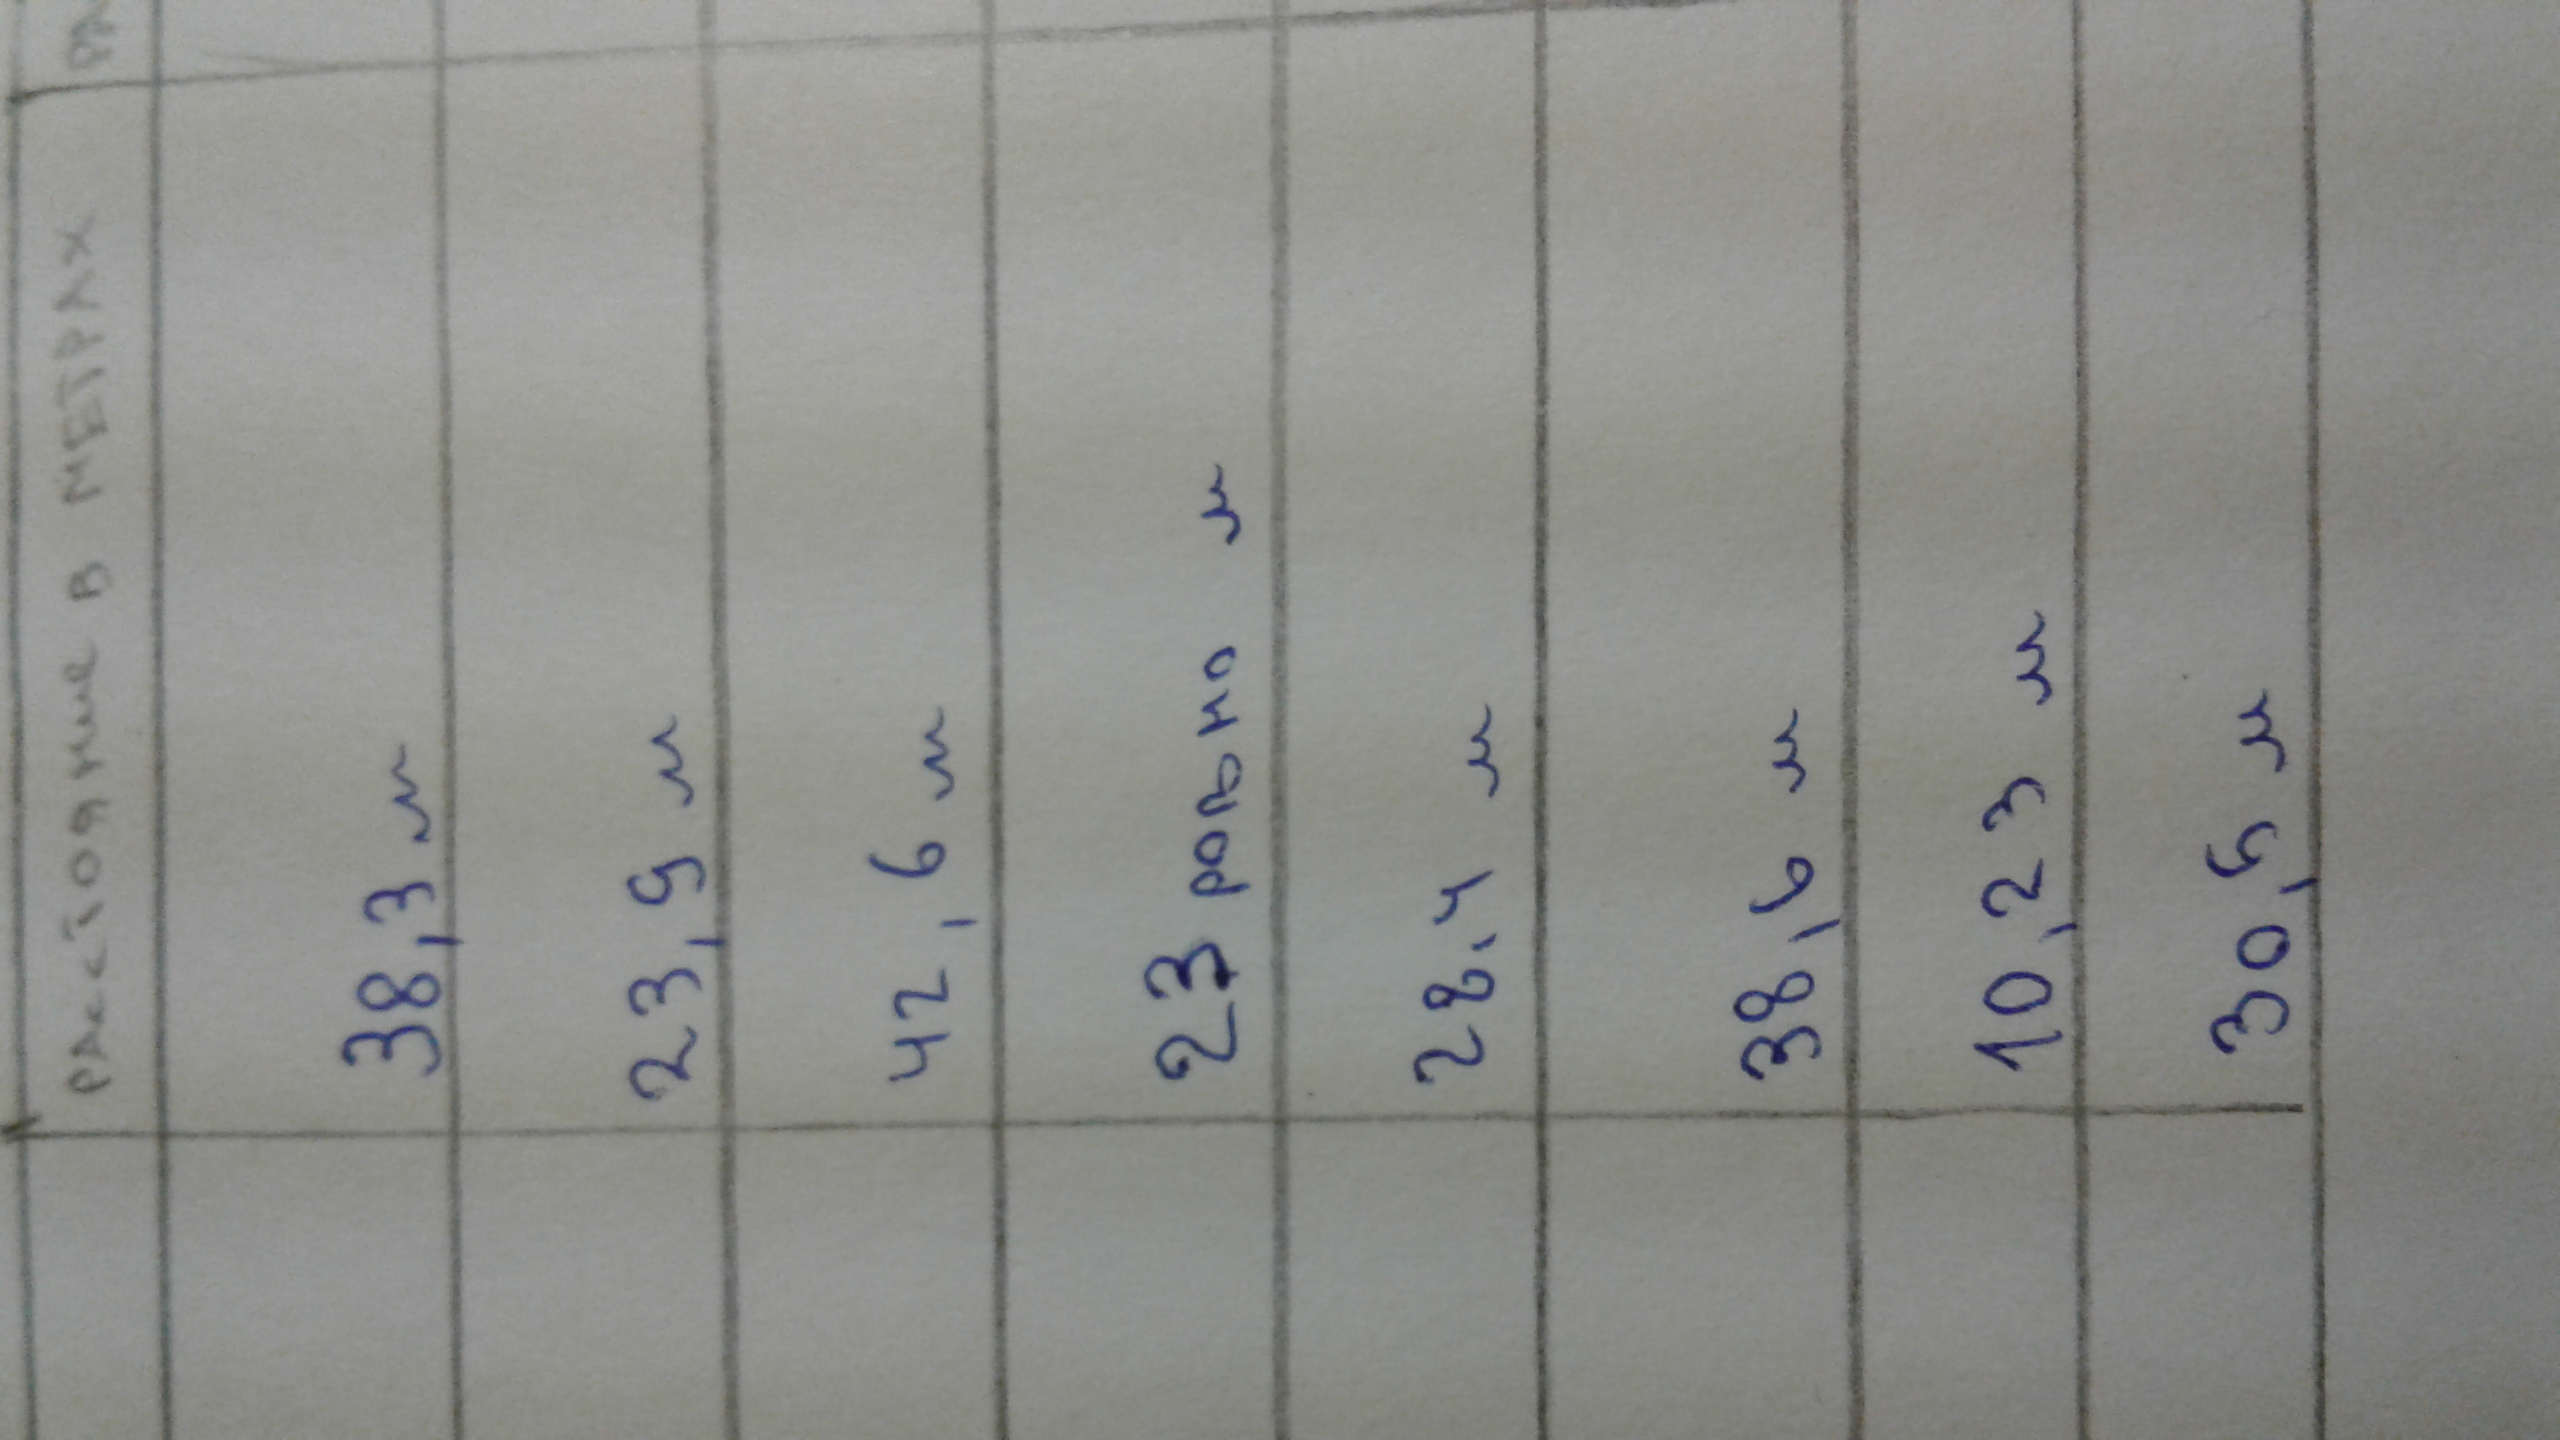 РАССТОЯНИЕ В МЕТРАХ РА
38,3 м
23,9 м
42,6 м
23 ровно м
28,4 м
38,6 м
10,23 м
30,5 м